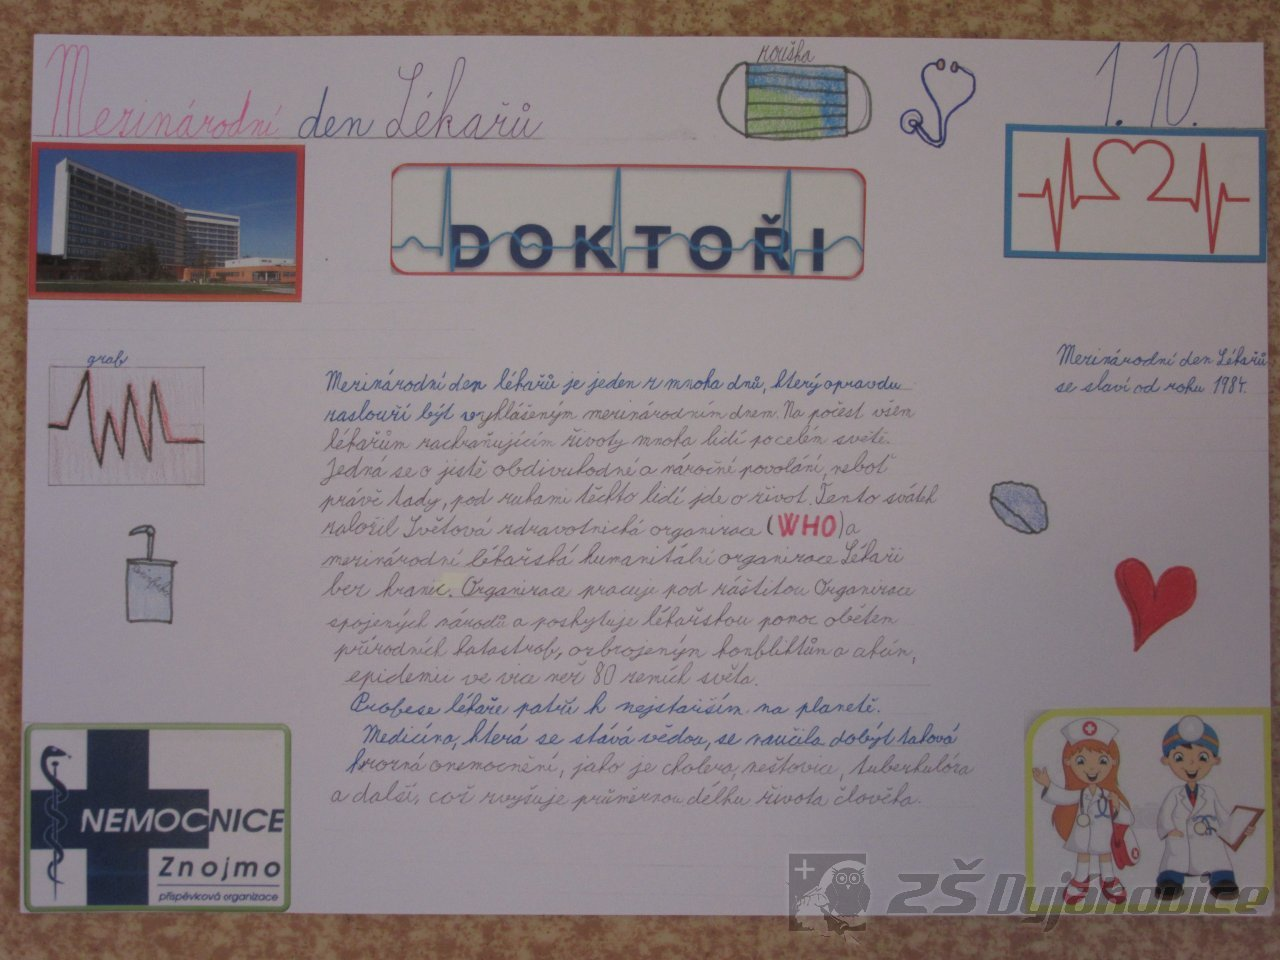 Mezinárodní den Lékařů
rouška
1. 10.
DOKTOŘI
graf
Mezinárodní den Lékařů
se slaví od roku 1984.
Mezinárodní den lékařů je jeden z mnoha dnů, který opravdu
zaslouží být vyhlášeným mezinárodním dnem. Na počest všem
lékařům zachraňujícím životy mnoha lidí po celém světě.
Jedná se o jistě obdivuhodné a náročné povolání, neboť
právě tady, pod rukami těchto lidí jde o život. Tento svátek
založil Světová zdravotnická organizace (WHO) a
mezinárodní lékařská humanitální organizace Lékaři
bez hranic. Organizace pracuje pod záštitou Organizace
spojených národů a poskytuje lékařskou pomoc obětem
přírodních katastrof, ozbrojeným konfliktům a akún,
epidemii ve více než 80 zemích světa.
Profese lékaře patří k nejstarším na planetě.
Medicína, která se stává vědou, se naučila dobýt taková
hrozná onemocnění, jako je cholera, neštovice, tuberkulóza
a další, což zvyšuje průměrnou délku života člověka.
NEMOCNICE
Znojmo
příspěvková organizace
ZŠ Dyjákovice